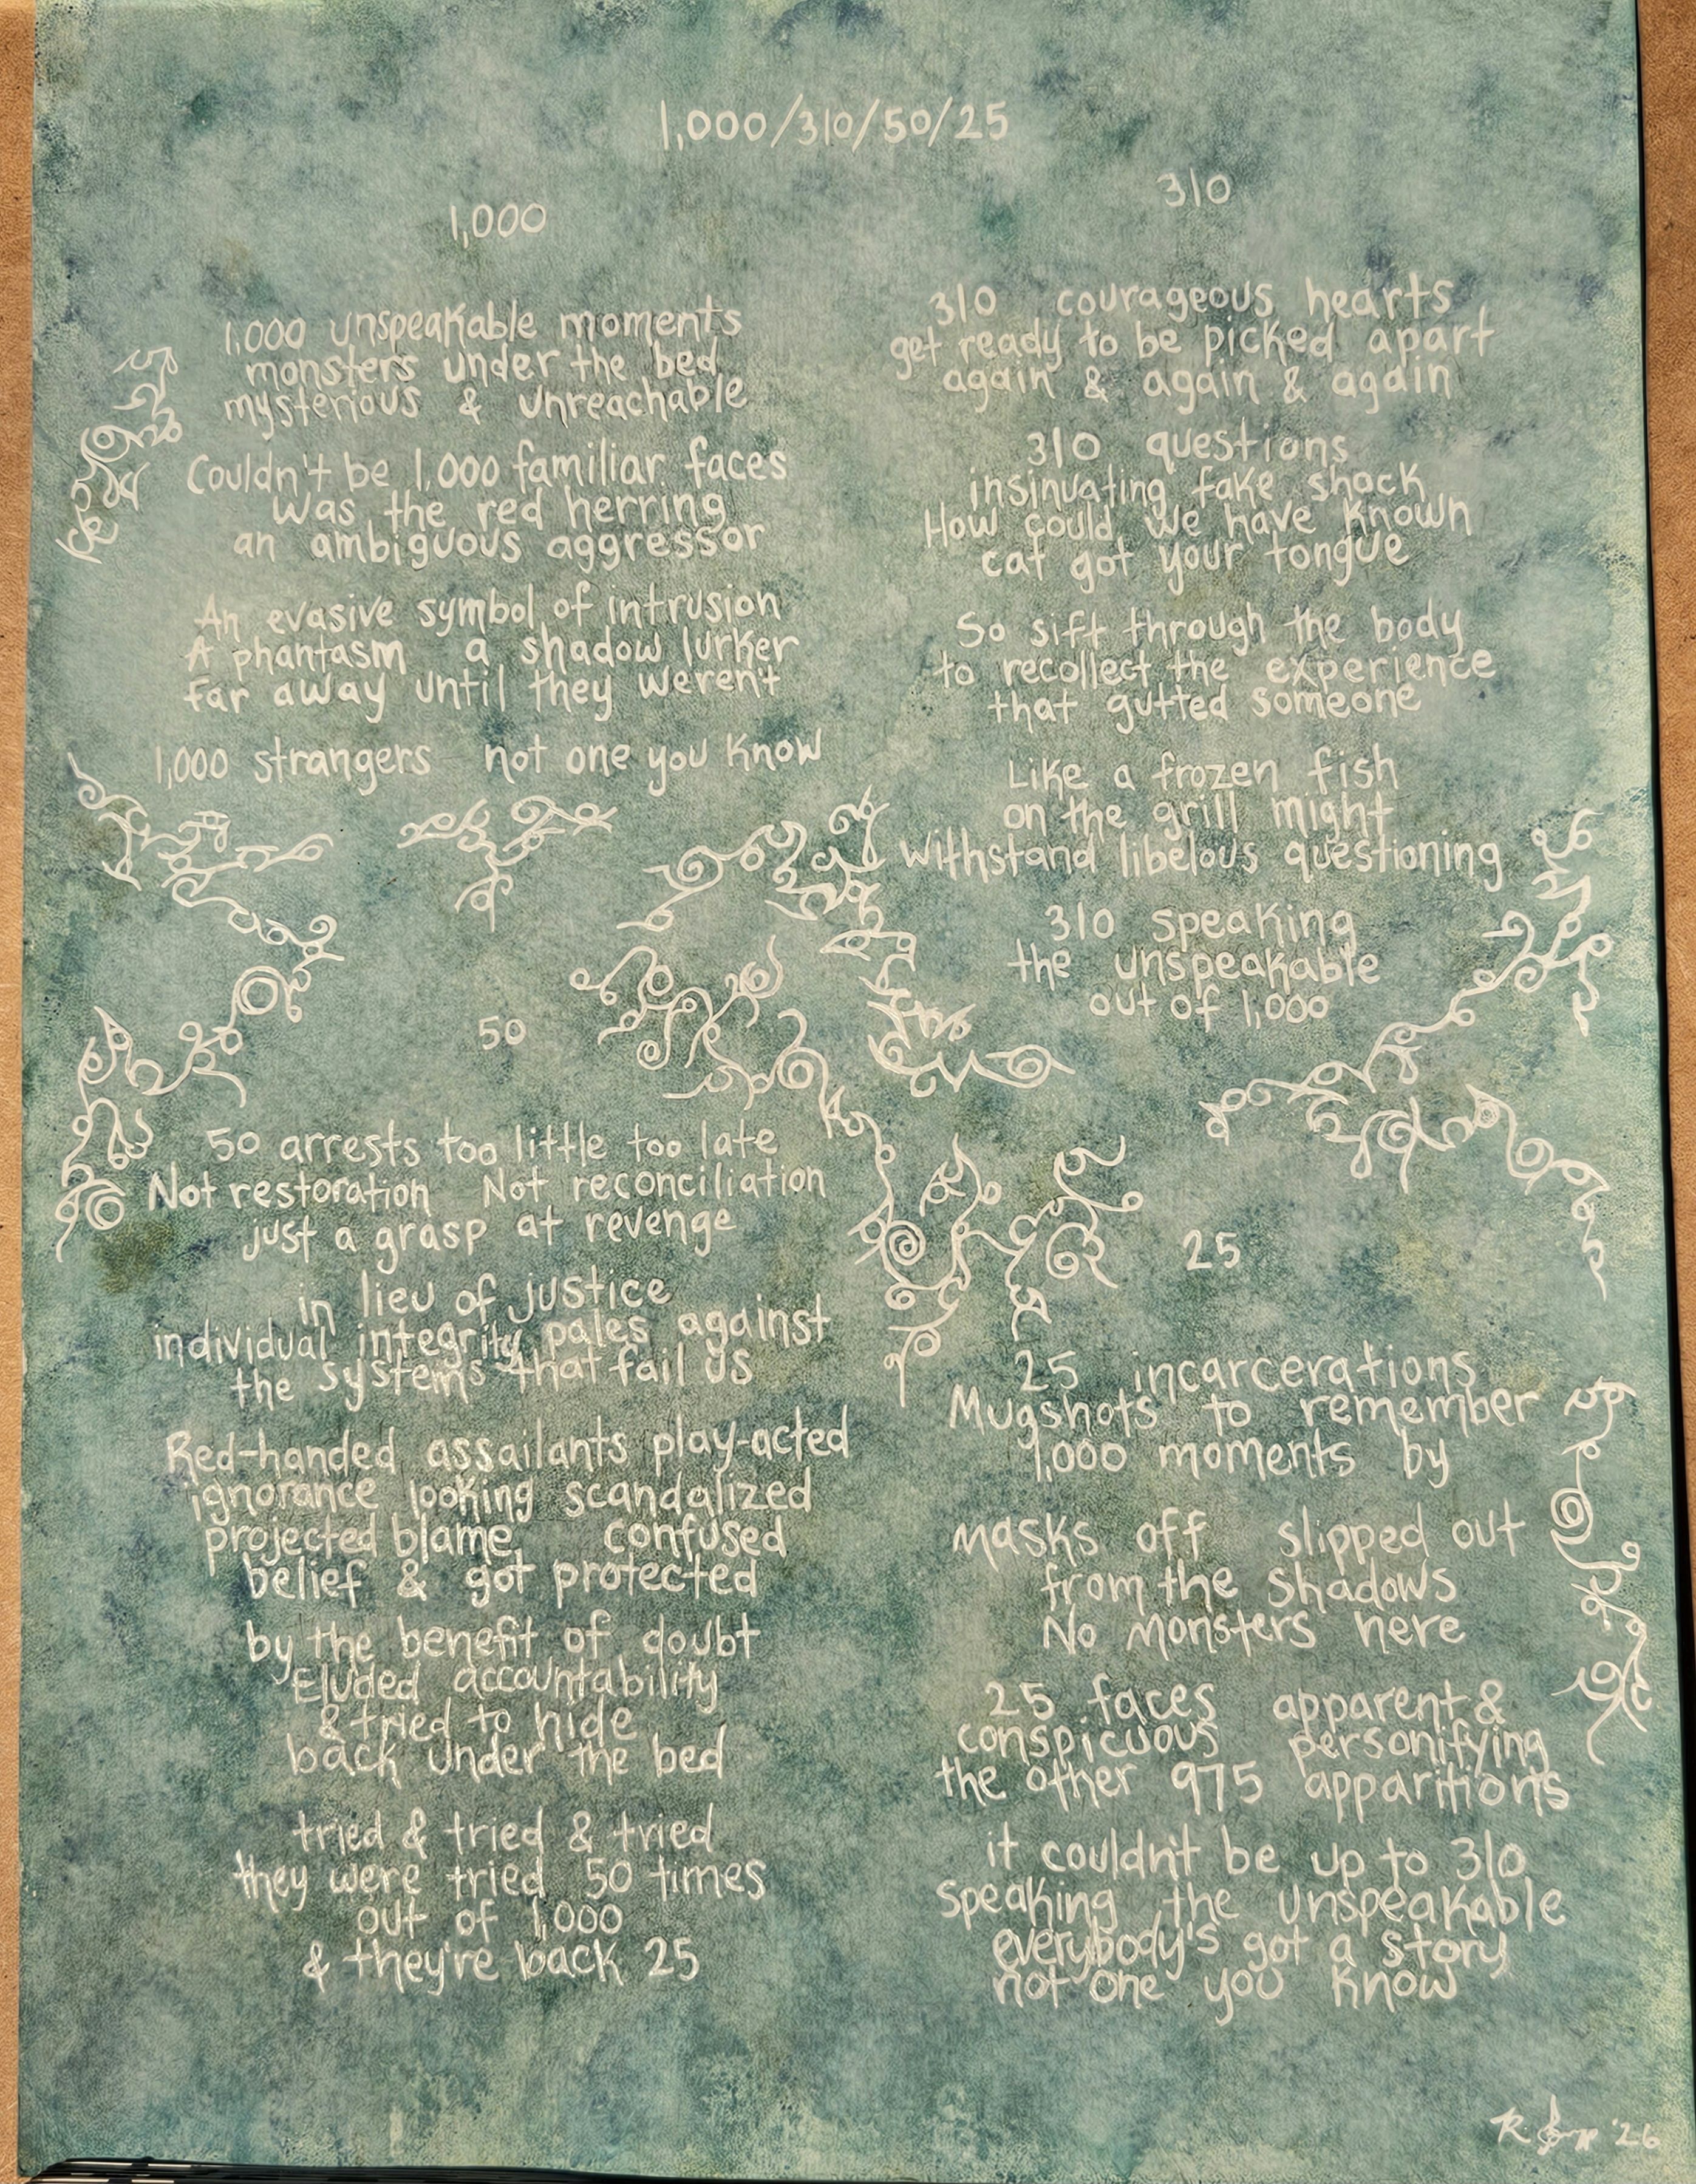 1,000/310/50/25
1,000
1,000 unspeakable moments
monsters under the bed
mysterious & unreachable
Couldn't be 1,000 familiar faces
Was the red herring
an ambiguous aggressor
An evasive symbol of intrusion
A phantasm a shadow lurker
far away until they weren't
1,000 strangers not one you know
310
310 courageous hearts
get ready to be picked apart
again & again & again
310 questions
insinuating fake shock
How could we have known
cat got your tongue
So sift through the body
to recollect the experience
that gutted someone
Like a frozen fish
on the grill might
withstand libelous questioning
310 speaking
the unspeakable
out of 1,000
50
50 arrests too little too late
Not restoration Not reconciliation
just a grasp at revenge
in lieu of justice
individual integrity pales against
the systems that fail us
Red-handed assailants play-acted
ignorance looking scandalized
projected blame confused
belief & got protected
by the benefit of doubt
Eluded accountability
& tried to hide
back under the bed
tried & tried & tried
they were tried 50 times
out of 1,000
& they're back 25
25
25 incarcerations
Mugshots to remember
1,000 moments by
masks off slipped out
from the shadows
No monsters here
25 faces apparent &
conspicuous personifying
the other 975 apparitions
it couldn't be up to 310
speaking the unspeakable
everybody's got a story
not one you know
'26